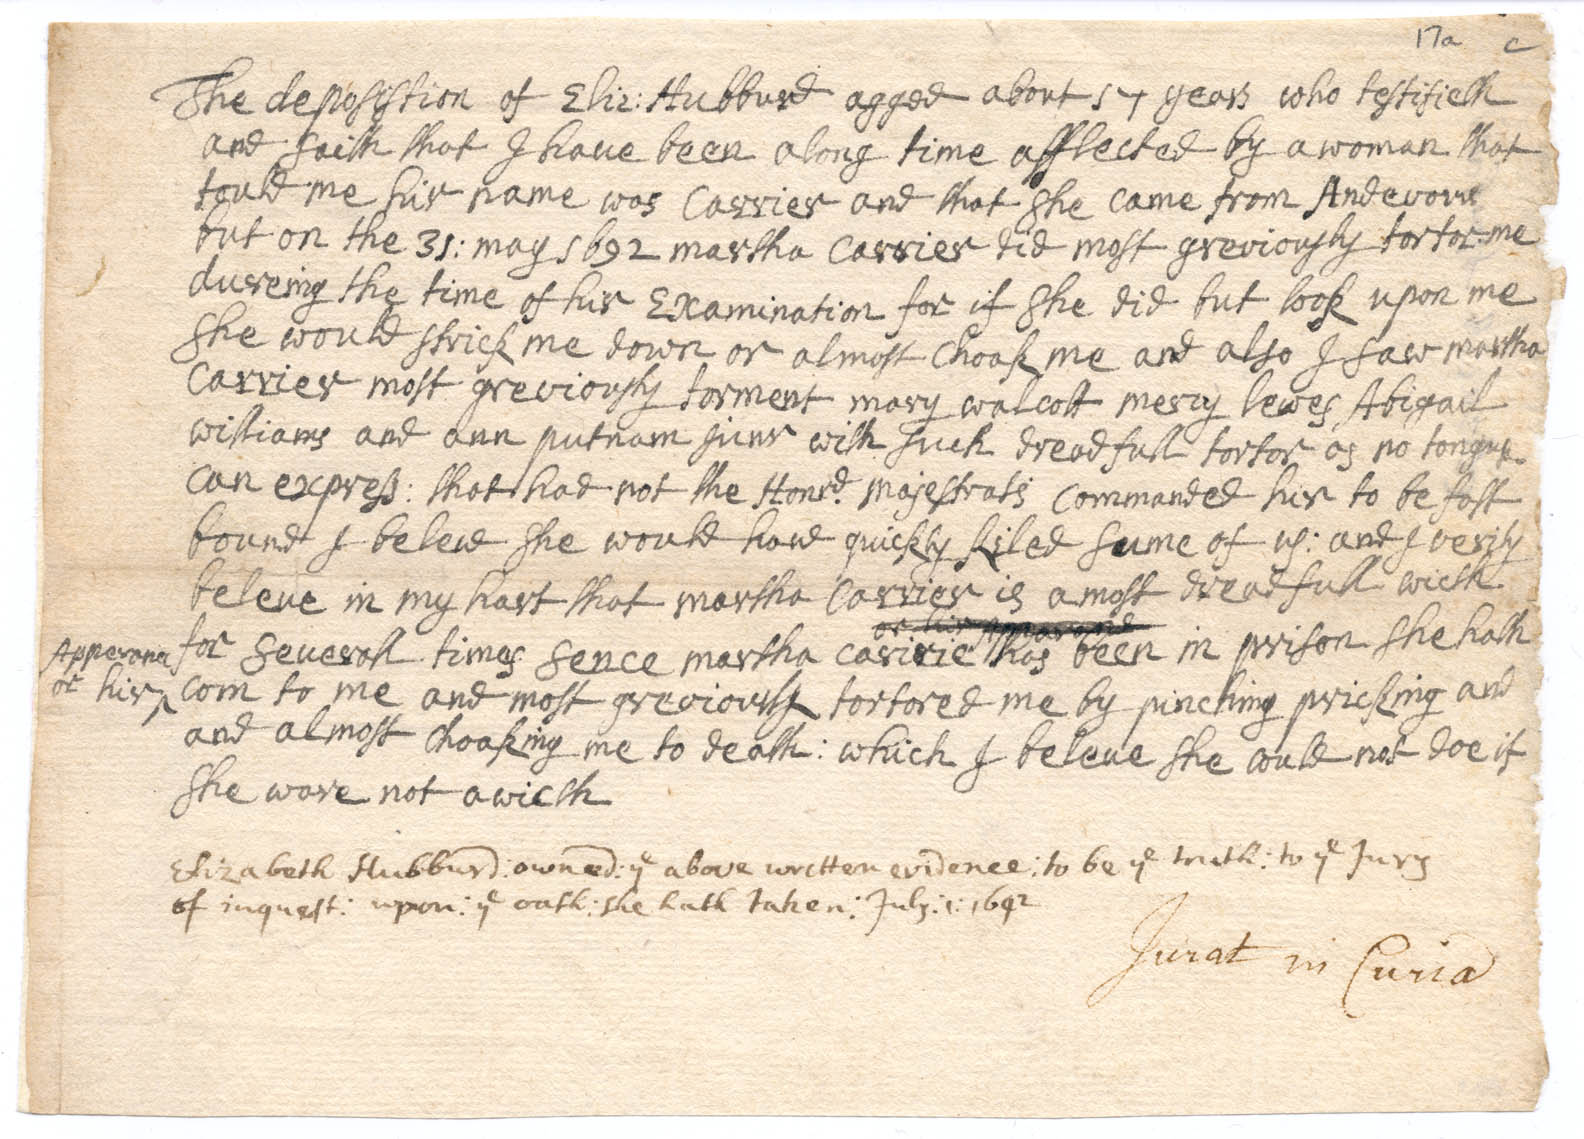 17a c
The deposistion of Eliz: Hubburd agged about 17 years who testifieth
and saith that I haue been along time afflected by a woman that
tould me hir name was Carrier and that she came from Andevour
but on the 31: may 1692 martha Carrier did most greviously tortor me
dureing the time of hir Examination for if she did but look upon me
she would strick me down or almost choak me and also I saw martha
Carrier most greviously torment mary walcott mercy lewes Abigail
williams and ann putnam junr with such dreadfull tortor as no tongue
can express: that had not the Honrd. majestrats commanded hir to be fast
bound I beleve she would have quickly kiled sume of us: and I verily
beleue in my hart that martha Carrier is a most dreadfull wicth
or hir Apperance
for seuerall times sence martha caririe has been in prison she hath
Apperance
or hir ^
com to me and most greviously tortored me by pinching pricking and
and almost choaking me to death: which I beleue she could not doe if
she ware not a wicth
Elizabeth Hubburd: owned: ye above written evidence: to be ye truth: to ye Jury
of inquest: upon: ye oath: she hath taken: July: 1: 1692
Jurat in Curia